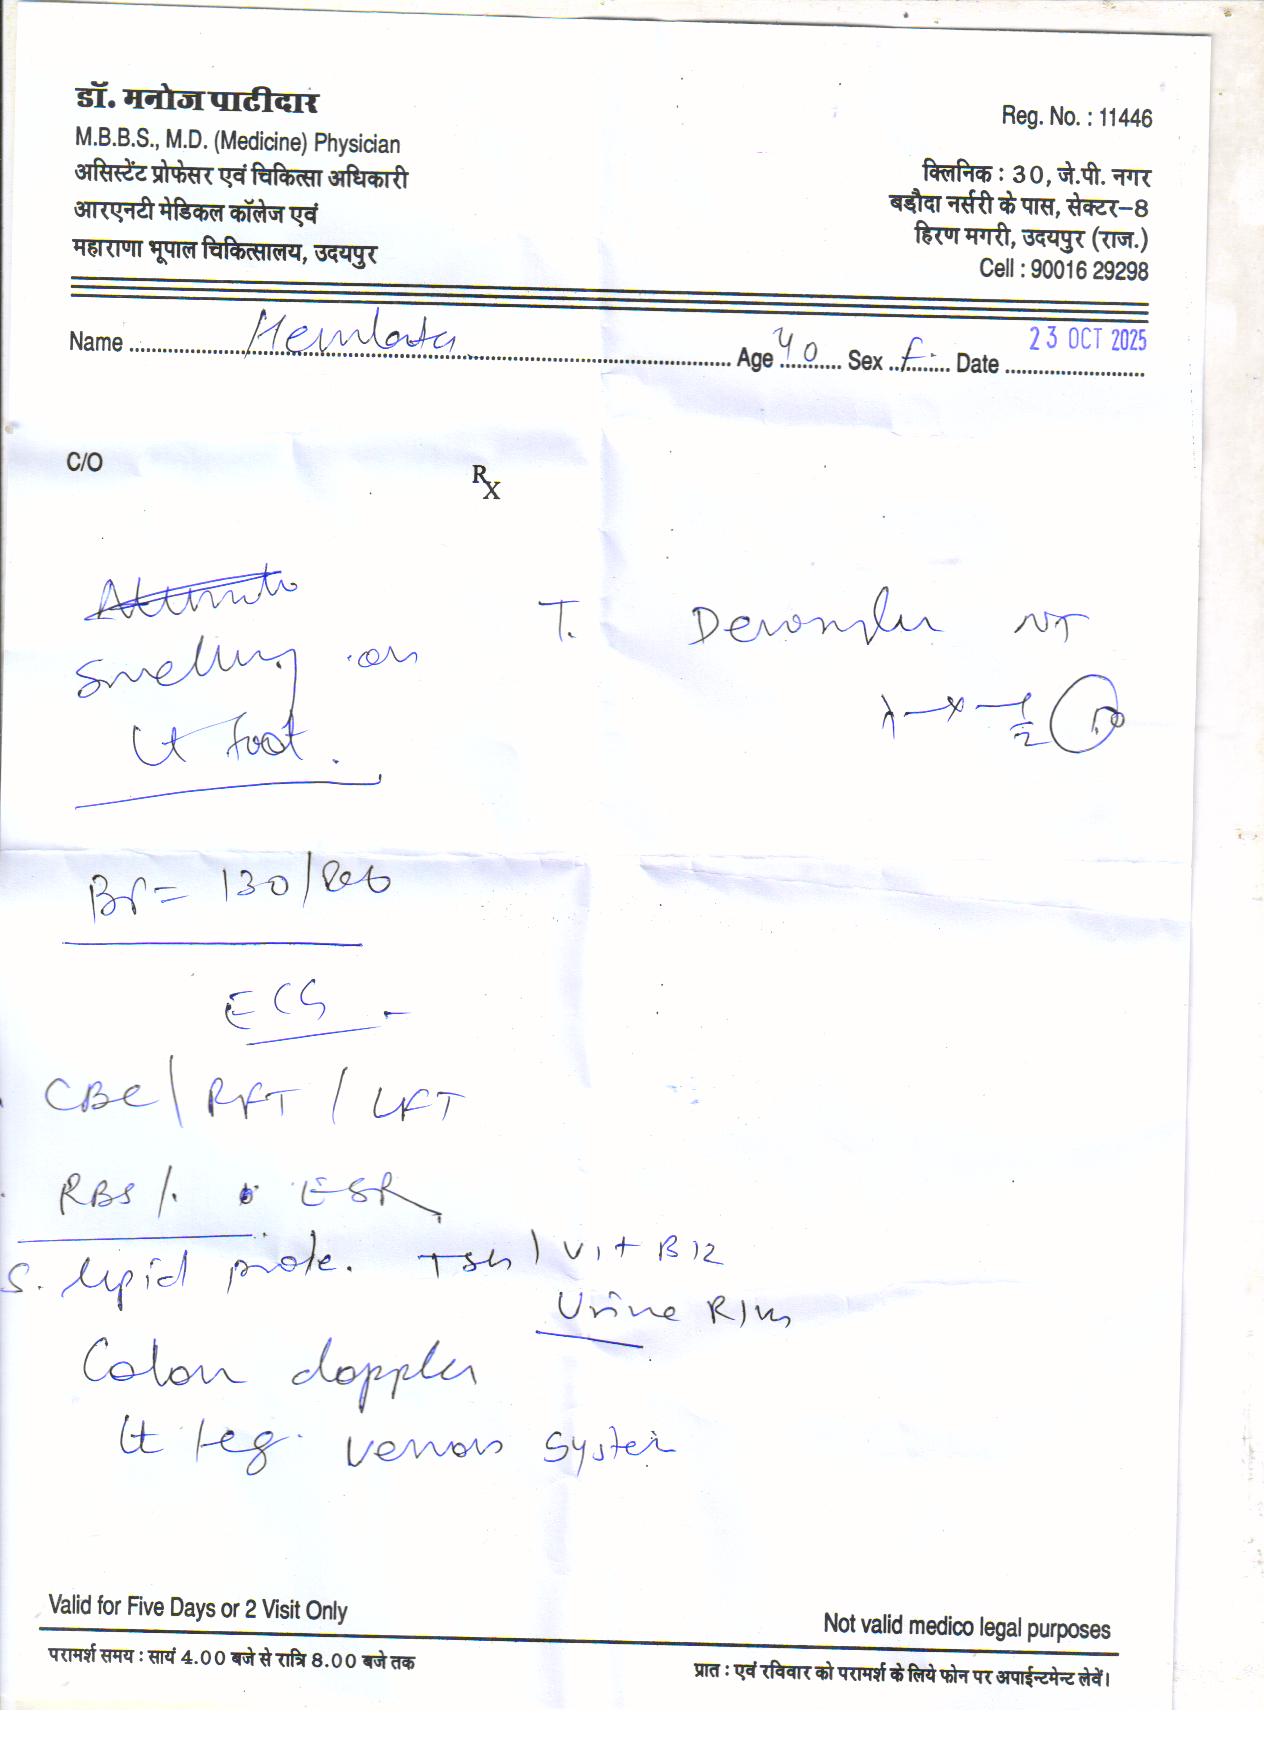 डॉ. मनोज पाटीदार
M.B.B.S., M.D. (Medicine) Physician
असिस्टेंट प्रोफेसर एवं चिकित्सा अधिकारी
आरएनटी मेडिकल कॉलेज एवं
महाराणा भूपाल चिकित्सालय, उदयपुर
Reg. No. : 11446
क्लिनिक : 30, जे.पी. नगर
बड़ौदा नर्सरी के पास, सेक्टर-8
हिरण मगरी, उदयपुर (राज.)
Cell : 90016 29298
Name Hemlata Age 40 Sex F. Date 23 OCT 2025
C/O
Rx
Swelling on
Lt foot.
T. NT
BP = 130/
ECG
CBC / RFT / LFT
RBS / ESR
S. lipid TSH / Vit B12
Urine R/M
Colour doppler
Lt leg. venous system
Valid for Five Days or 2 Visit Only
Not valid medico legal purposes
परामर्श समय : सायं 4.00 बजे से रात्रि 8.00 बजे तक
प्रात : एवं रविवार को परामर्श के लिये फोन पर अपाईन्टमेन्ट लेवें।